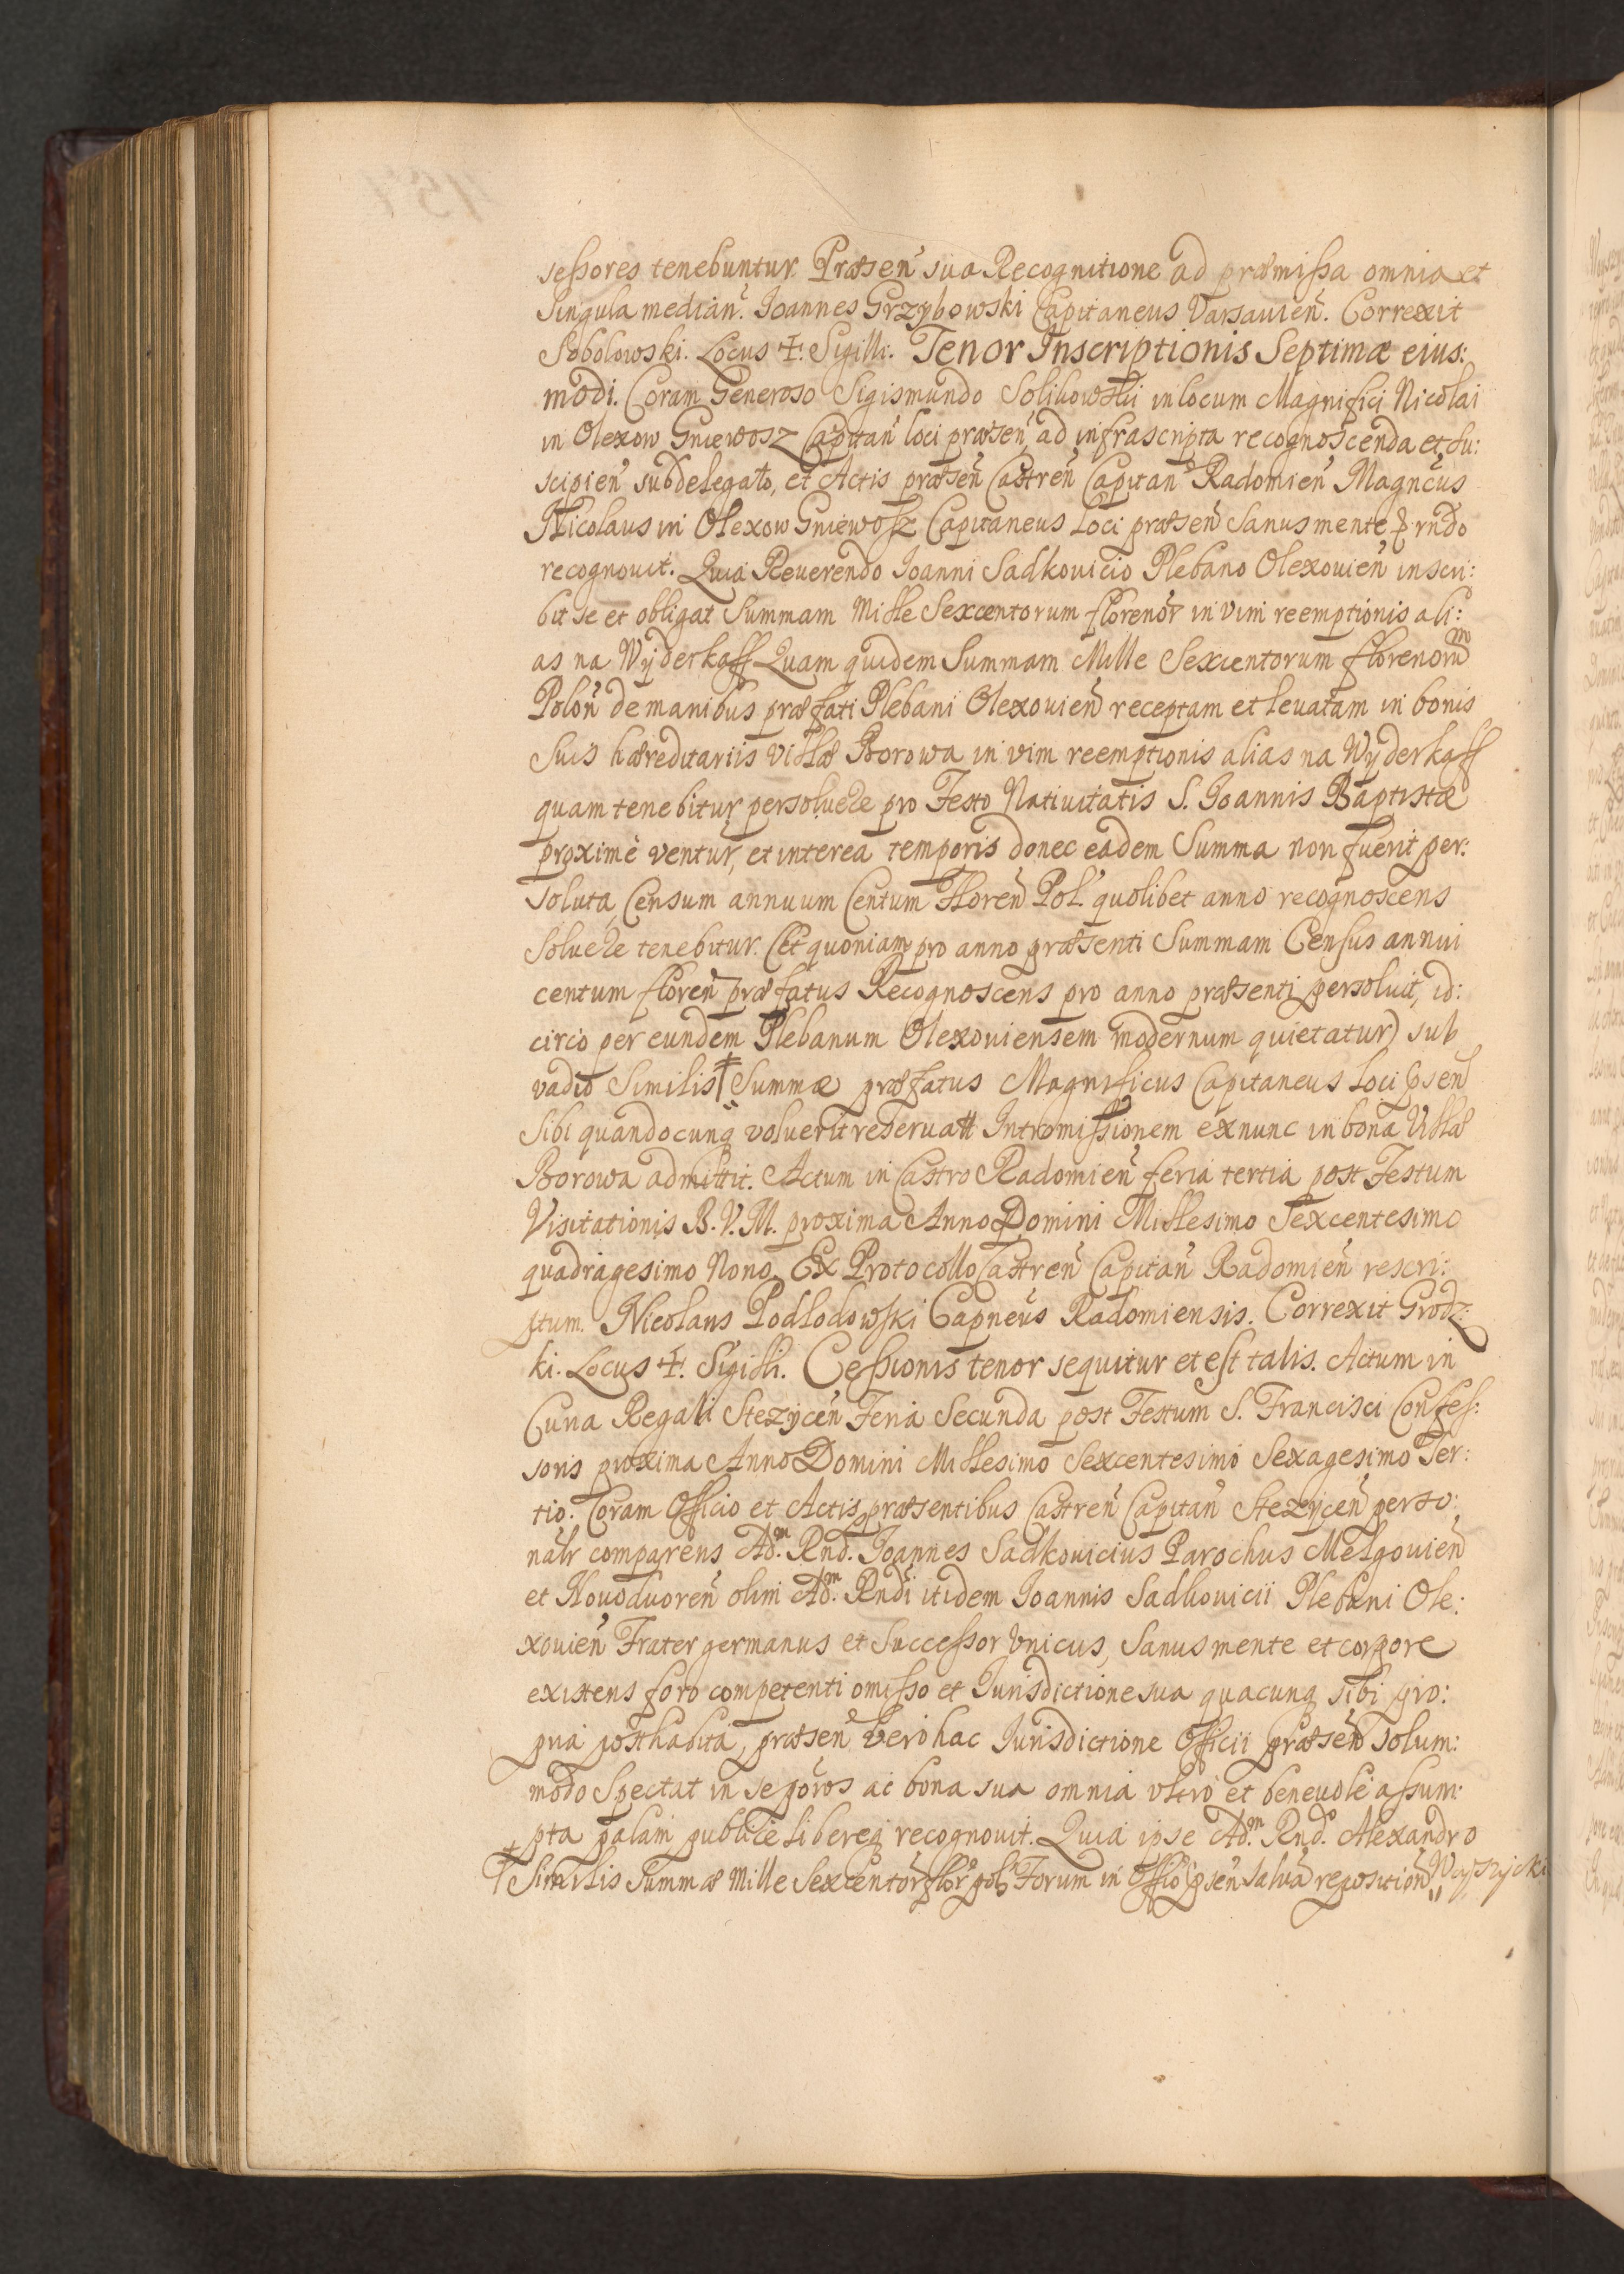 sessores tenebuntur. Præsen̄ sua Recognitione ad præmissa omnia et
Singula median̄. Joannes Grzybowski Capitaneus Varsauien̄. Correxit
Sobolowski. Locus ✝. Sigilli. Tenor Inscriptionis Septimæ eius:
modi. Coram Generoso Sigismundo Solikowski in locum Magnifici Nicolai
in Olexow Gniewosz Capitan̄ loci præsen̄ ad infrascripta recognoscenda et su:
scipien̄ subdelegato, et Actis præsen̄ Castren̄ Capitan̄ Radomien̄ Magnc̄us
Nicolaus in Olexow Gniewosz Capitaneus Loci præsen̄ Sanus mente & rndo
recognouit. Quia Reuerendo Joanni Sadkouicio Plebano Olexouien̄ inscri:
bit se et obligat Summam Mille Sexcentorum florenor̄ in vim reemptionis ali:
as na Wyderkaff Quam quidem Summam Mille Sexcentorum florenorum
Polon̄ de manibus præfati Plebani Olexouien̄ receptam et leuatam in bonis
Suis hæreditariis Villæ Borowa in vim reemptionis alias na Wyderkaff
quam tenebitur persoluere pro Festo Natiuitatis S. Joannis Baptistæ
proximè ventur̄, et interea temporis donec eadem Summa non fuerit per:
soluta, Censum annuum Centum Floren̄ Pol. quolibet anno recognoscens
Soluere tenebitur. (Et quoniam pro anno præsenti Summam Census annui
centum floren̄ præfatus Recognoscens pro anno præsenti persoluit, id:
circo per eundem Plebanum Olexouiensem modernum quietatur) sub
vadio Similis ‡ Summæ præfatus Magnificus Capitaneus Loci p̄sen̄
Sibi quandocunq voluerit reseruatt Intromissionem ex nunc in bona Villæ
Borowa admittit. Actum in Castro Radomien̄ feria tertia post Festum
Visitationis B. V. M. proxima Anno Domini Millesimo Sexcentesimo
quadragesimo Nono. Ex Protocollo Castren̄ Capitan̄ Radomien̄ rescri:
ptum. Nicolaus Podlodowski Capneūs Radomiensis. Correxit Grodz:
ki. Locus ✝. Sigilli. Cessionis tenor sequitur et est talis. Actum in
Curia Regali Stezycen̄ Feria Secunda post Festum S. Francisci Confes:
soris proxima Anno Domini Millesimo Sexcentesimo Sexagesimo Ter:
tio. Coram Officio et Actis præsentibus Castren̄ Capitan̄ Stezycen̄ perso:
nalr comparens Adm. Rnd. Joannes Sadkouicius Parochus Melgouien̄
et Nouoduoren̄ olim Adm. Rndi itidem Joannis Sadkouicii Plebani Ole:
xouien̄ Frater germanus et Successor Vnicus, Sanus mente et corpore
existens foro competenti omisso et Jurisdictione sua quacunq sibi pro:
pria posthabita, præsen̄ verò hac Jurisdictione Officii præsen̄ solum:
modo Spectat in se por̄os ac bona sua omnia vltro et beneuole assum:
pta palam publice libereq recognouit. Quia ipse Adm. Rnd. Alexandro
‡ Similis Summæ Mille Sexcentor̄ flor̄ pol. Forum in Offic̄o p̄sen̄ salua reposition̄ Woyszycki